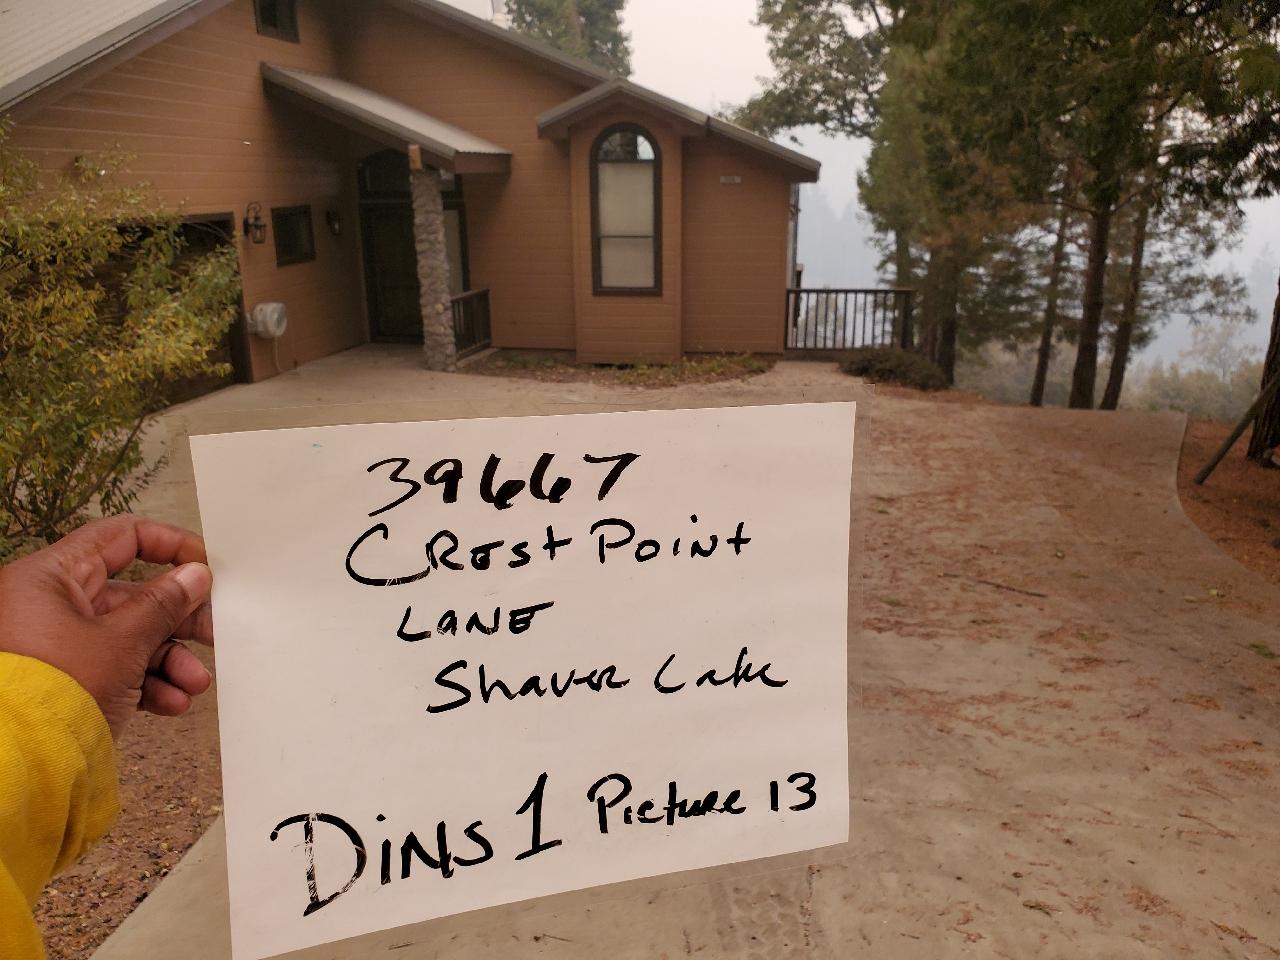 39667
Crest Point
Lane
Shaver Lake
DINS 1 Picture 13